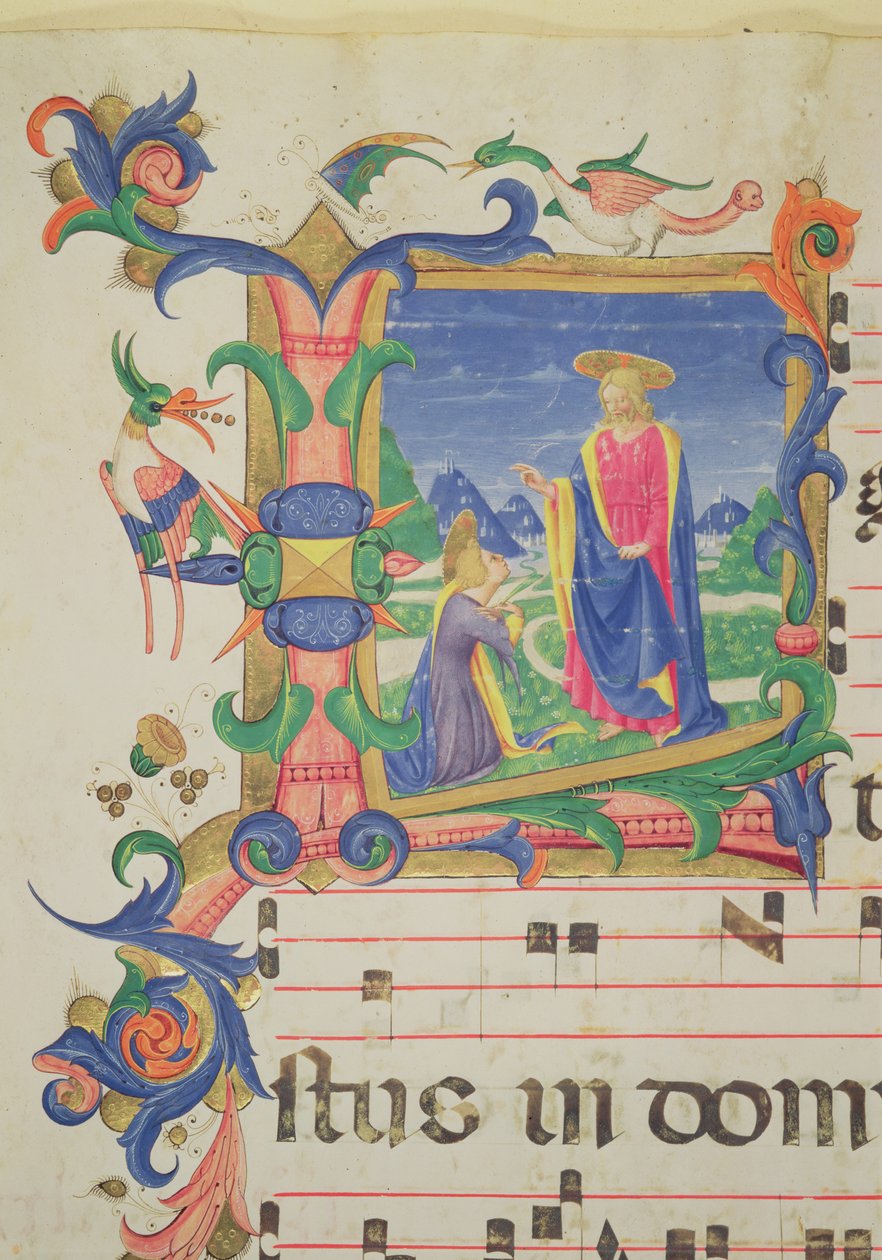 t
ſtus in dom